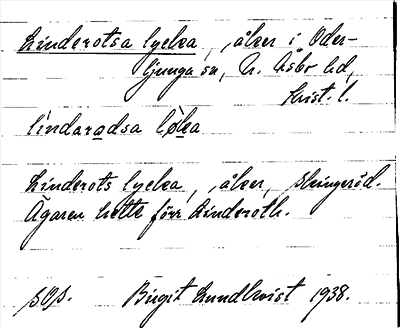 Linderotsa lycka, åker i Oder-
ljunga sn, N. Åsbo hd,
Krist. l.
lìndarodsa løka
Linderots lycka, åker, Slingeröd.
Ägaren hette förr Linderoth.
Birgit Lundkvist 1938.